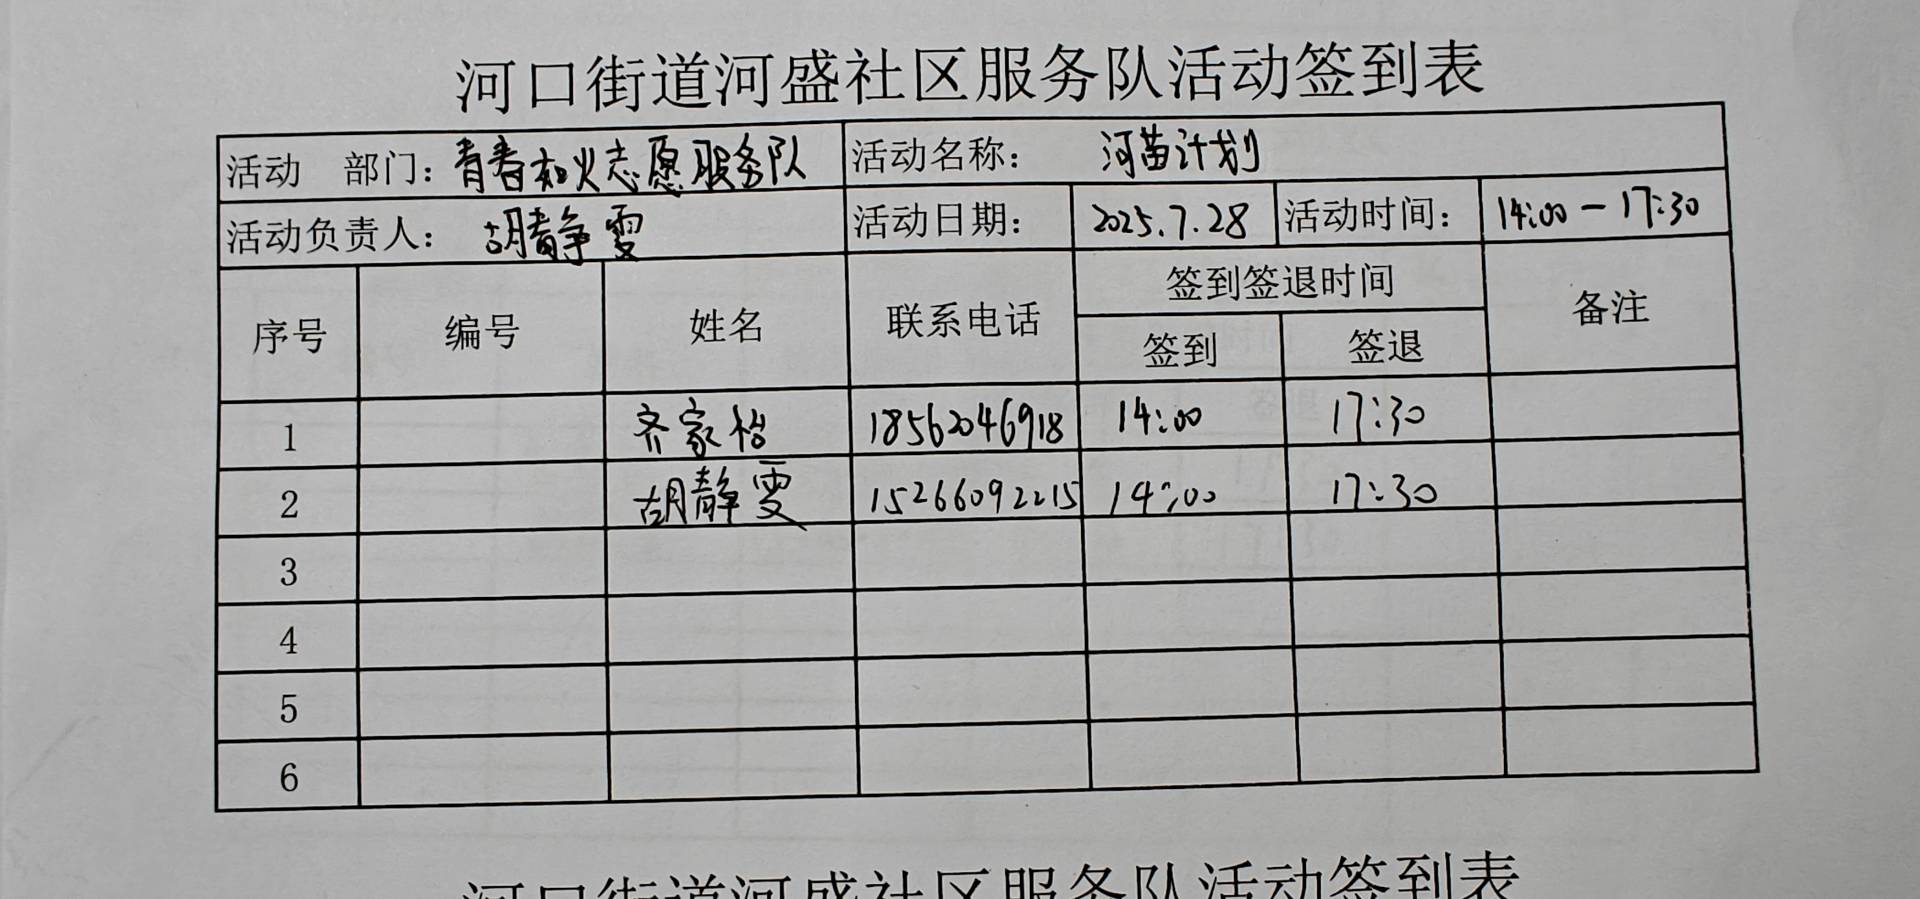 河口街道河盛社区服务队活动签到表
活动 部门：青春如火志愿服务队 活动名称： 河苗计划
活动负责人： 胡静雯 活动日期： 2025.7.28 活动时间： 14:00－17:30
序号 编号 姓名 联系电话 签到签退时间 备注
签到 签退
1 齐家怡 18562046918 14:00 17:30
2 胡静雯 15266092215 14:00 17:30
3
4
5
6
河口街道河盛社区服务队活动签到表